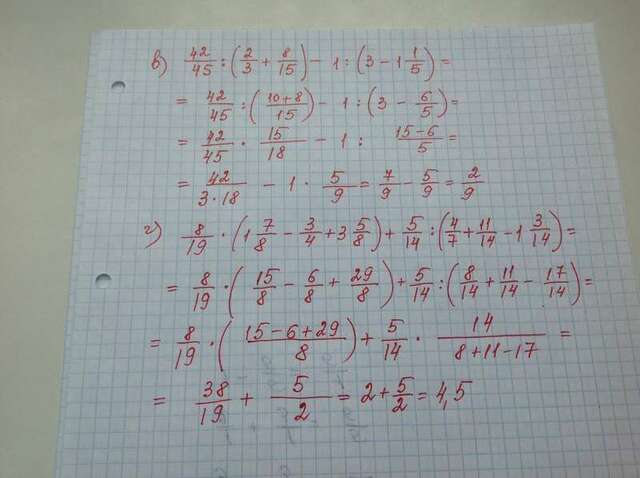 в) 42/45 : (2/3 + 8/15) - 1 : (3 - 1 1/5) =
= 42/45 : (10+8/15) - 1 : (3 - 6/5) =
= 42/45 · 15/18 - 1 : 15-6/5 =
= 42/3·18 - 1 · 5/9 = 7/9 - 5/9 = 2/9
г) 8/19 · (1 7/8 - 3/4 + 3 5/8) + 5/14 : (4/7 + 11/14 - 1 3/14) =
= 8/19 · (15/8 - 6/8 + 29/8) + 5/14 : (8/14 + 11/14 - 17/14) =
= 8/19 · (15-6+29/8) + 5/14 · 14/8+11-17 =
= 38/19 + 5/2 = 2 + 5/2 = 4,5